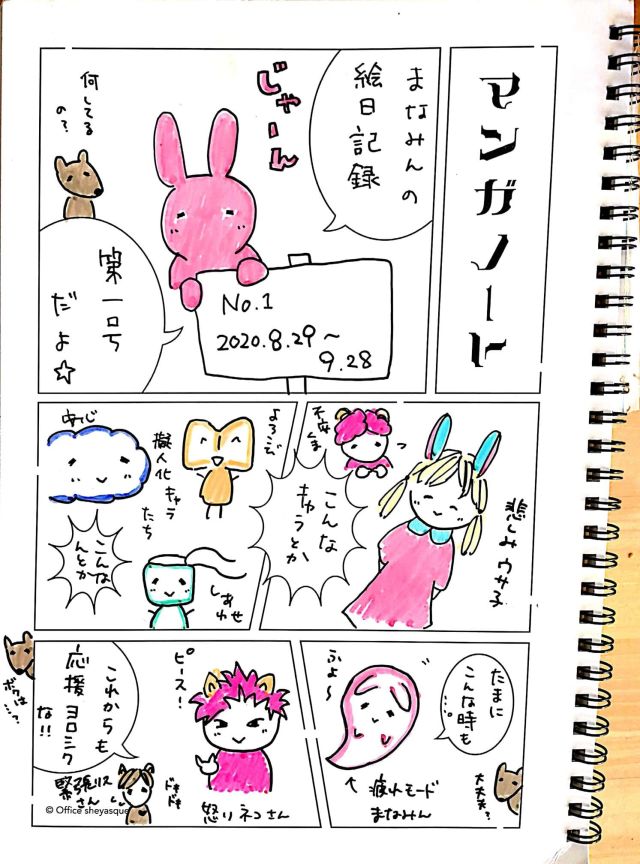 マンガノート
まなみんの
絵日記録
じゃーん
何してる
の?
No.1
2020.8.29〜
9.28
第一号
だよ☆
悲しみウサ子
不安ま
こんな
キャラとか
よろこび
擬人化キャラ
たち
あんじ
こんな
んとか
しあわせ
たまに
こんな時も
....
ふよ〜
↑疲れモード
まなみん
大丈夫?
ピース!
怒りネコさん
これからも
応援ヨロシク
な!!
ボクは
…?
緊張リス
さん
ドキドキ
© Office sheyasque